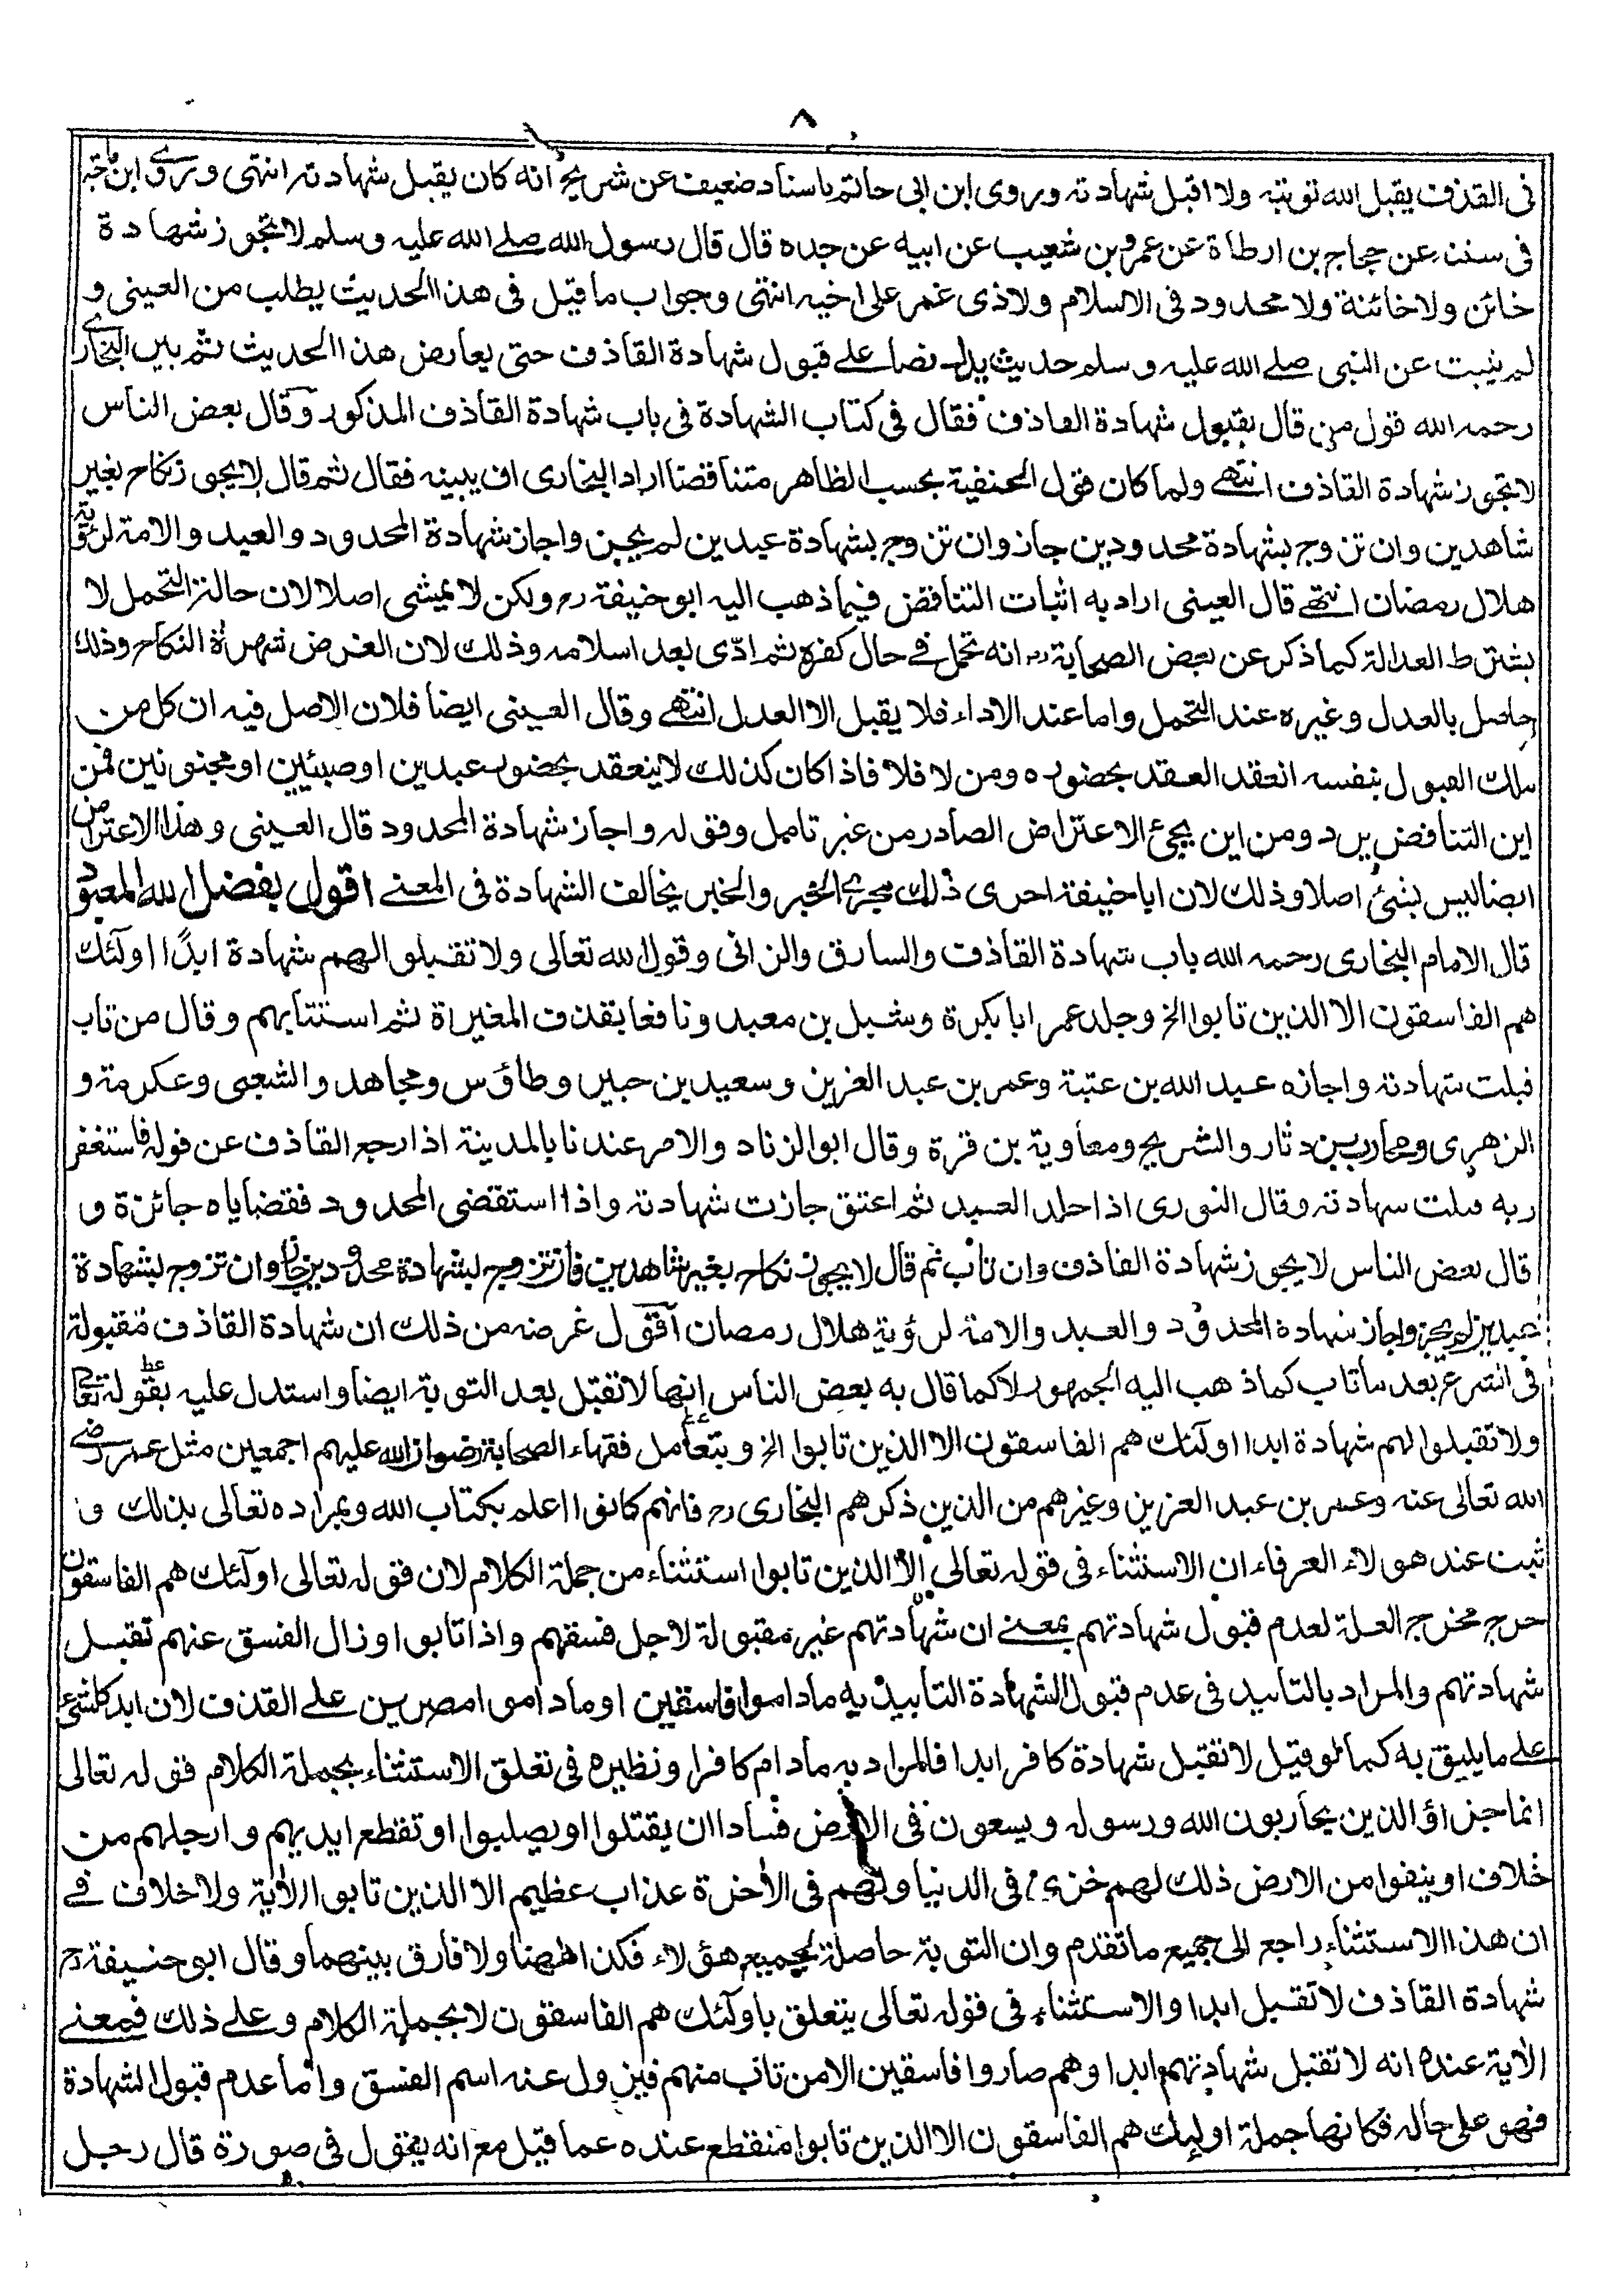 ٨
فى القذف يقبل الله توبته ولا اقبل شهادته وروى ابن ابى حاتم باسناد ضعيف عن شريح انه كان يقبل شهادته انتهى وروى ابن ماجة
فى سننه عن حجاج بن ارطاة عن عمرو بن شعيب عن ابيه عن جده قال قال رسول الله صلے الله عليه وسلم لا تجوز شهادة
خائن ولا خائنة ولا محدود فى الاسلام ولا ذى غمر على اخيه انتهى وجواب ما قيل فى هذا الحديث يطلب من العينى و
لم يثبت عن النبى صلے الله عليه وسلم حديث يدل نصا علے قبول شهادة القاذف حتى يعارض هذا الحديث ثم بين البخارى
رحمه الله قول من قال بقبول شهادة القاذف فقال فى كتاب الشهادة فى باب شهادة القاذف المذكور وقال بعض الناس
لا تجوز شهادة القاذف انتهے ولما كان قول الحنفية بحسب الظاهر متناقضا اراد البخارى ان يبينه فقال ثم قال لا يجوز نكاح بغير
شاهدين وان تزوج بشهادة محدودين جاز وان تزوج بشهادة عبدين لم يجز واجاز شهادة المحدود والعبد والامة لرؤية
هلال رمضان انتهے قال العينى اراد به اثبات التناقض فيما ذهب اليه ابو حنيفة رح ولكن لا يمشى اصلا لان حالة التحمل لا
يشترط العدالة كما ذكر عن بعض الصحابة رض انه تحمل فے حال كفره ثم ادّى بعد اسلامه وذلك لان الغرض شهرة النكاح وذلك
حاصل بالعدل وغيره عند التحمل واما عند الاداء فلا يقبل الا العدل انتهے وقال العينى ايضا فلان الاصل فيه ان كل من
ملك القبول بنفسه انعقد العقد بحضوره ومن لا فلا فاذا كان كذلك لا ينعقد بحضور عبدين او صبيين او مجنونين فمن
اين التناقض يرد ومن اين يجئ الاعتراض الصادر من غير تامل وقوله واجاز شهادة المحدود قال العينى وهذا الاعتراض
ايضا ليس بشئ اصلا وذلك لان ابا حنيفة اجرى ذلك مجرى الخبر والخبر يخالف الشهادة فى المعنے اقول بفضل الله المعبود
قال الامام البخارى رحمه الله باب شهادة القاذف والسارق والزانى وقول الله تعالى ولا تقبلوا لهم شهادة ابدًا اولئك
هم الفاسقون الا الذين تابوا الخ وجلد عمر ابا بكرة وشبل بن معبد ونافعا بقذف المغيرة ثم استتابهم وقال من تاب
قبلت شهادته واجازه عبد الله بن عتبة وعمر بن عبد العزيز وسعيد بن جبير وطاؤس ومجاهد والشعبى وعكرمة و
الزهرى ومحارب بن دثار والشريح ومعاوية بن قرة وقال ابو الزناد والامر عندنا بالمدينة اذا رجع القاذف عن قوله فاستغفر
ربه قبلت شهادته وقال الثورى اذا جلد العبد ثم اعتق جازت شهادته واذا استقضى المحدود فقضاياه جائزة و
قال بعض الناس لا يجوز شهادة القاذف وان تاب ثم قال لا يجوز نكاح بغير شاهدين فان تزوج بشهادة محدودين جاز وان تزوج بشهادة
عبدين لم يجز واجاز شهادة المحدود والعبد والامة لرؤية هلال رمضان اقول غرضه من ذلك ان شهادة القاذف مقبولة
فى الشرع بعد ما تاب كما ذهب اليه الجمهور لا كما قال به بعض الناس انها لا تقبل بعد التوبة ايضا واستدل عليه بقوله تعالى
ولا تقبلوا لهم شهادة ابدا اولئك هم الفاسقون الا الذين تابوا الخ وبتعامل فقهاء الصحابة رضوان الله عليهم اجمعين مثل عمر رضى
الله تعالى عنه وعمر بن عبد العزيز وغيرهم من الذين ذكرهم البخارى رح فانهم كانوا اعلم بكتاب الله وبمراده تعالى بذلك و
ثبت عند هولاء العرفاء ان الاستثناء فى قوله تعالى الا الذين تابوا استثناء من جملة الكلام لان قوله تعالى اولئك هم الفاسقون
خرج مخرج العلة لعدم قبول شهادتهم بمعنے ان شهادتهم غير مقبولة لاجل فسقهم واذا تابوا وزال الفسق عنهم تقبل
شهادتهم والمراد بالتابيد فى عدم قبول الشهادة التابيد به ماداموا فاسقين او ماداموا مصرين علے القذف لان ابد كل شئ
علے ما يليق به كما لو قيل لا تقبل شهادة كافر ابدا فالمراد به مادام كافرا ونظيره فى تعلق الاستثناء بجملة الكلام قوله تعالى
انما جزاؤ الذين يحاربون الله ورسوله ويسعون فى الارض فسادا ان يقتلوا او يصلبوا او تقطع ايديهم وارجلهم من
خلاف او ينفوا من الارض ذلك لهم خزى فى الدنيا ولهم فى الأخرة عذاب عظيم الا الذين تابوا الأية ولا خلاف فے
ان هذا الاستثناء راجع الى جميع ما تقدم وان التوبة حاصلة لجميع هؤلاء فكذا ههنا ولا فارق بينهما وقال ابو حنيفة رح
شهادة القاذف لا تقبل ابدا والاستثناء فى قوله تعالى يتعلق باولئك هم الفاسقون لا بجملة الكلام وعلے ذلك فمعنے
الأية عنده انه لا تقبل شهادتهم ابدا وهم صاروا فاسقين الا من تاب منهم فيزول عنه اسم الفسق واما عدم قبول الشهادة
فهو على حاله فكانها جملة اولئك هم الفاسقون الا الذين تابوا منقطع عنده عما قيل مع انه يقول فى صورة قال رجل